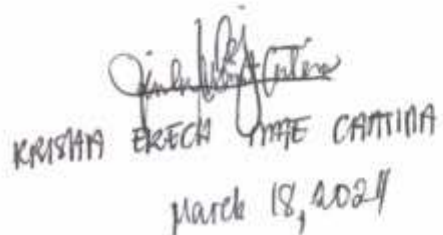 KRISHA ERECH MAE CANTINA
March 18, 2024